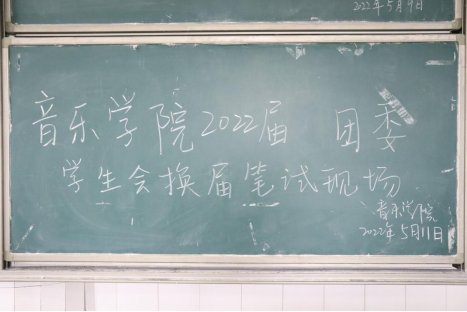 2022年5月9日
音乐学院2022届 团委
学生会换届笔试现场
音乐学院
2022年5月11日